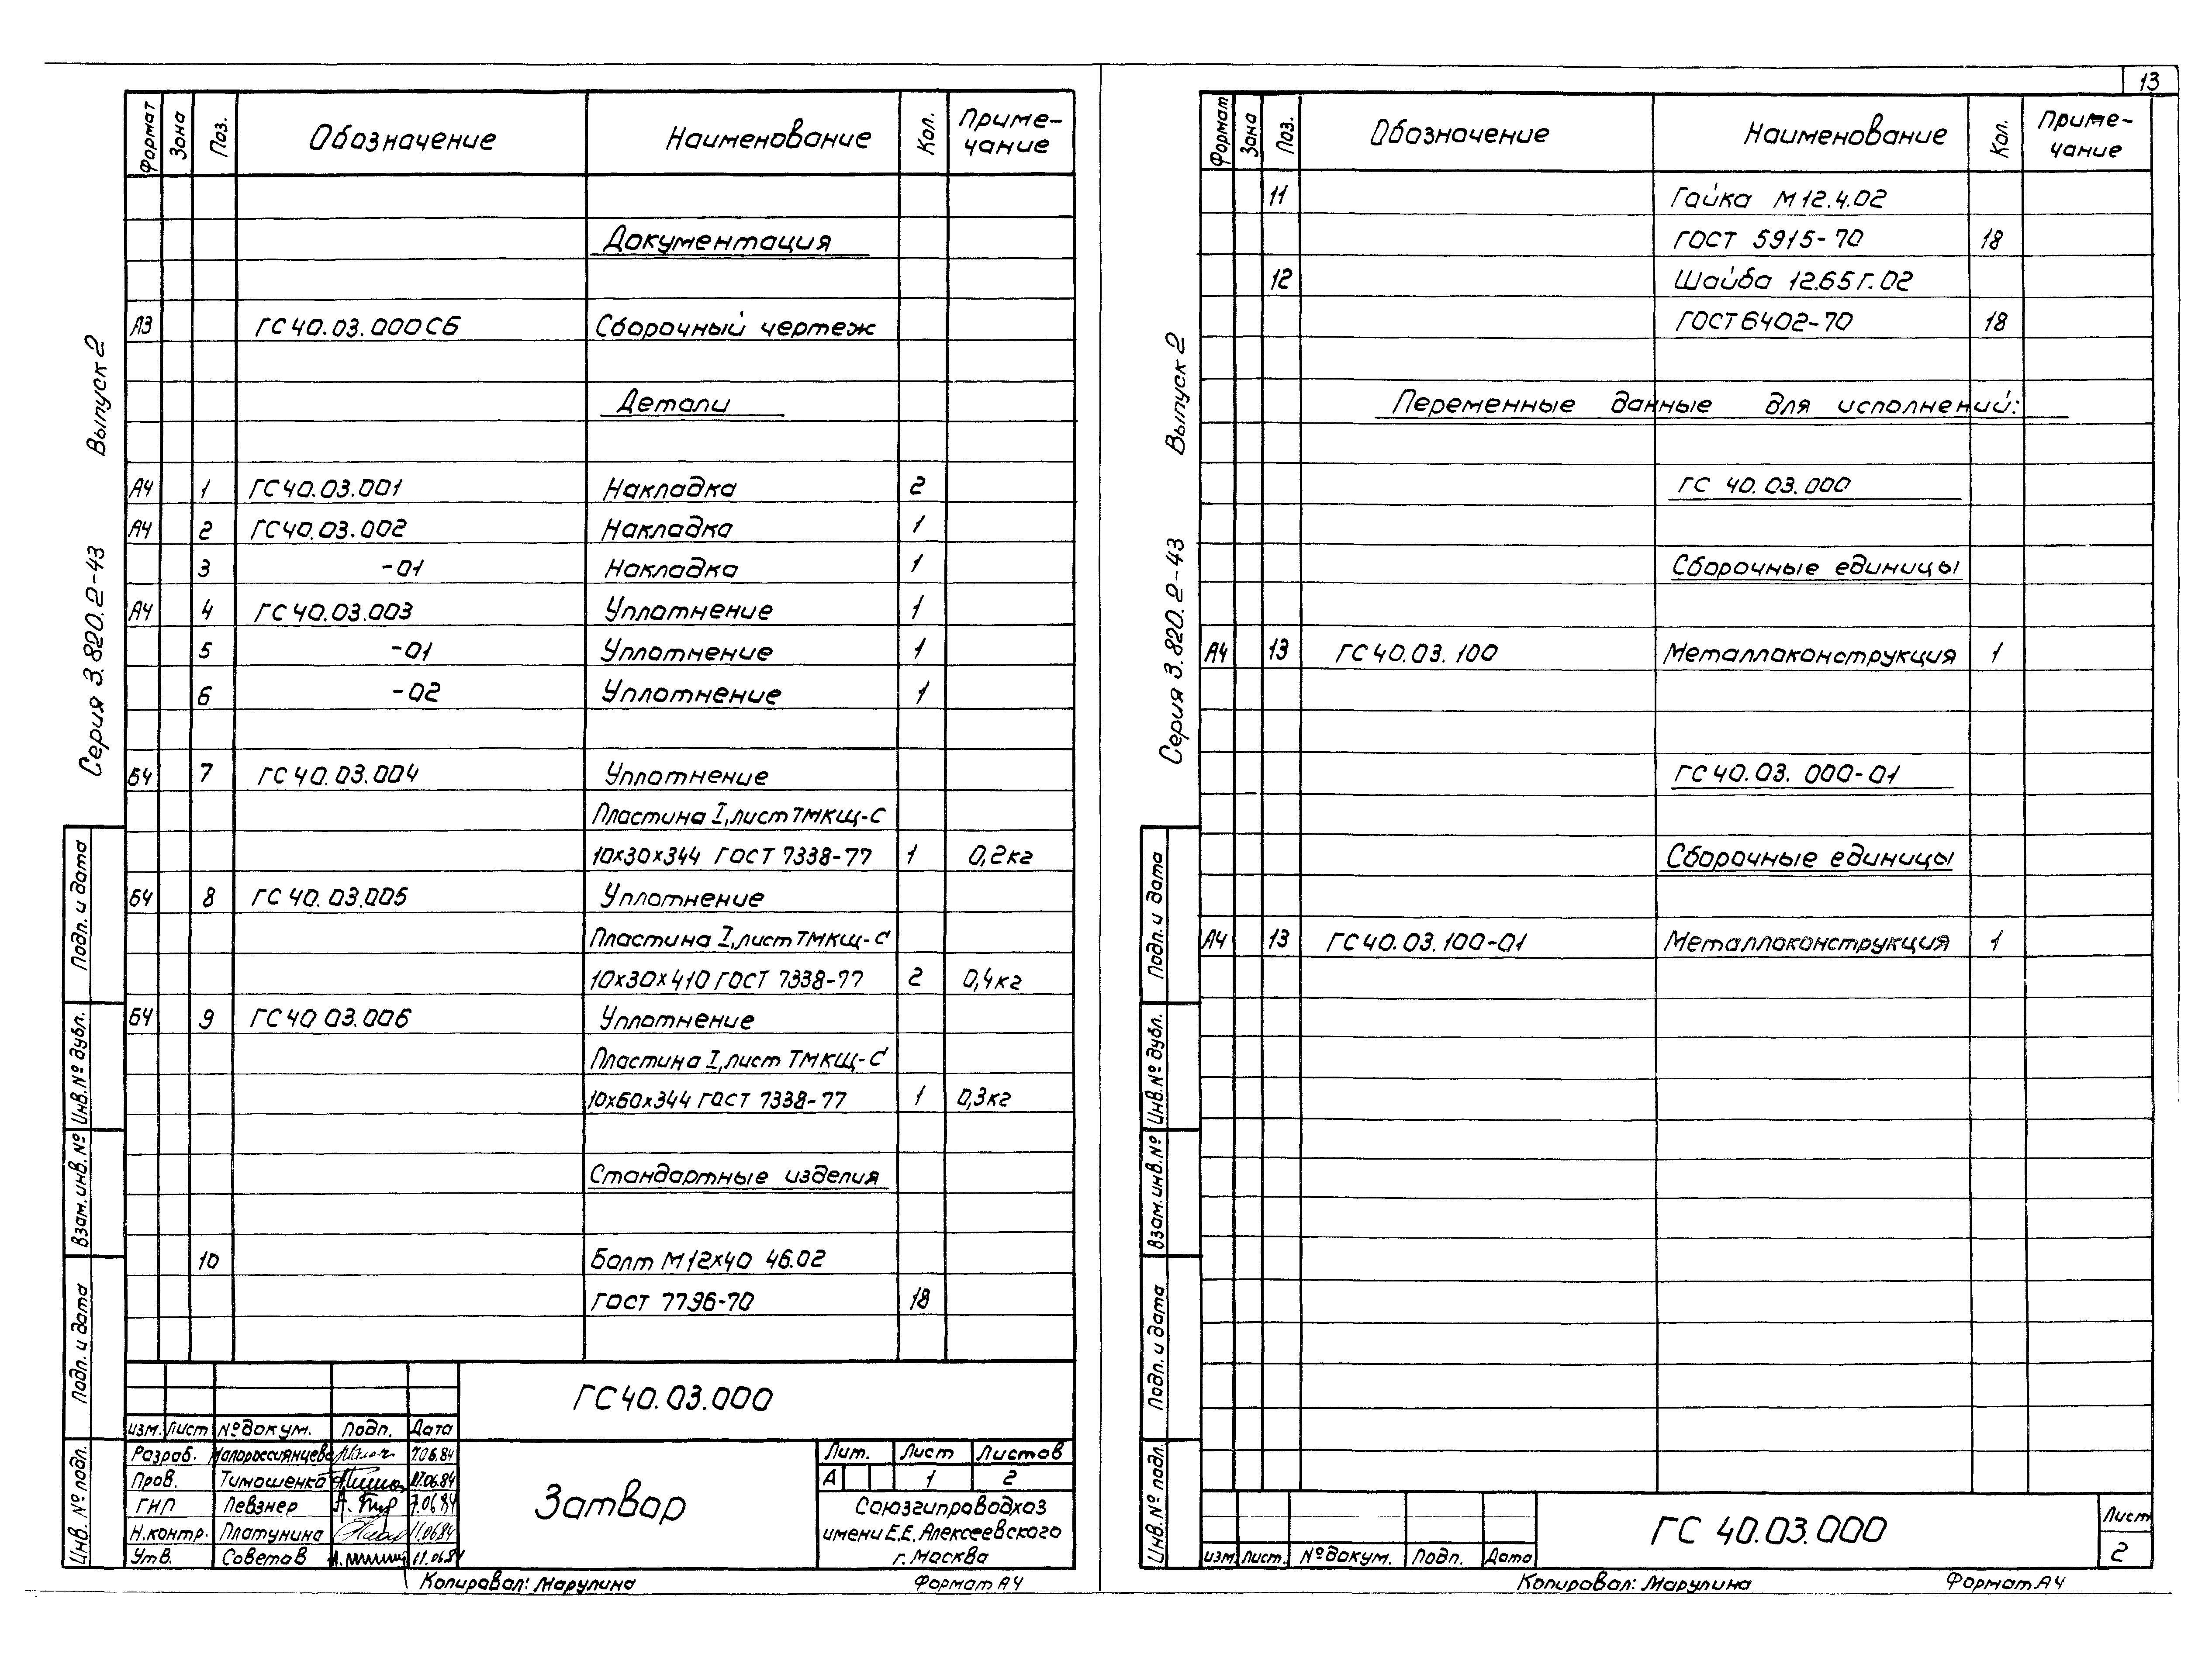 13
Формат Зона Поз. Обозначение Наименование Кол. Приме-
чание
Документация
А3 ГС40.03.000СБ Сборочный чертеж
Детали
А4 1 ГС40.03.001 Накладка 2
А4 2 ГС40.03.002 Накладка 1
3 -01 Накладка 1
А4 4 ГС40.03.003 Уплотнение 1
5 -01 Уплотнение 1
6 -02 Уплотнение 1
Б4 7 ГС40.03.004 Уплотнение
Пластина I, лист ТМКЩ-С
10х30х344 ГОСТ 7338-77 1 0,2кг
Б4 8 ГС40.03.005 Уплотнение
Пластина I, лист ТМКЩ-С
10х30х410 ГОСТ 7338-77 2 0,4кг
Б4 9 ГС40 03.006 Уплотнение
Пластина I, лист ТМКЩ-С
10х60х344 ГОСТ 7338-77 1 0,3кг
Стандартные изделия
10 Болт М12х40 46.02
ГОСТ 7796-70 18
Серия 3.820.2-43 Выпуск 2
Подп. и дата
Инв. № дубл.
Взам. инв. №
Подп. и дата
Инв. № подл.
ГС40.03.000
Изм. Лист № докум. Подп. Дата
Разраб. Малороссиянцева 7.06.84
Пров. Тимошенко 11.06.84
ГИП Певзнер 7.06.84
Н.контр. Платунина 11.06.84
Утв. Советов 11.06.84
Затвор
Лит. Лист Листов
А 1 2
Союзгипроводхоз
имени Е.Е. Алексеевского
г. Москва
Копировал: Марулина Формат А4
Формат Зона Поз. Обозначение Наименование Кол. Приме-
чание
11 Гайка М12.4.02
ГОСТ 5915-70 18
12 Шайба 12.65Г.02
ГОСТ 6402-70 18
Переменные данные для исполнений:
ГС 40.03.000
Сборочные единицы
А4 13 ГС40.03.100 Металлоконструкция 1
ГС40.03.000-01
Сборочные единицы
А4 13 ГС40.03.100-01 Металлоконструкция 1
Серия 3.820.2-43 Выпуск 2
Подп. и дата
Инв. № дубл.
Взам. инв. №
Подп. и дата
Инв. № подл.
Изм. Лист. № докум. Подп. Дата
ГС 40.03.000
Лист
2
Копировал: Марулина Формат А4